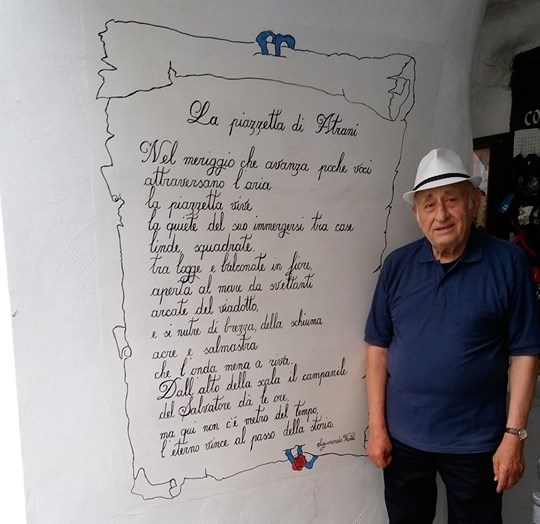 La piazzetta di Atrani
Nel meriggio che avanza poche voci
attraversano l'aria
la piazzetta vive
la quiete del suo immergersi tra case
linde, squadrate,
tra logge e balconate in fiore,
aperta al mare da svettanti
arcate del viadotto,
e si nutre di brezza, della schiuma
acre e salmastra
che l'onda mena a riva.
Dall'alto della scala il campanile
del Salvatore dà le ore,
ma qui non c'è metro del tempo,
l'eterno vince al passo della storia.
CO